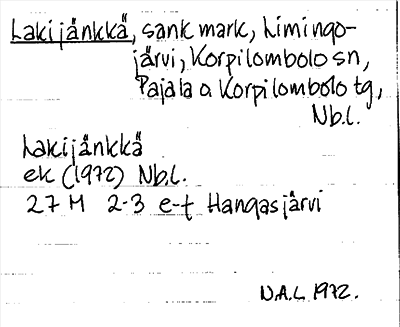 Lakijänkkä, sank mark, Limingo-
järvi, Korpilombolo sn,
Pajala o Korpilombolo tg,
Nb.l.
Lakijänkkä
ek (1972) Nb.l.
27 M 2-3 e-f Hangasjärvi
N.A.L 1972.